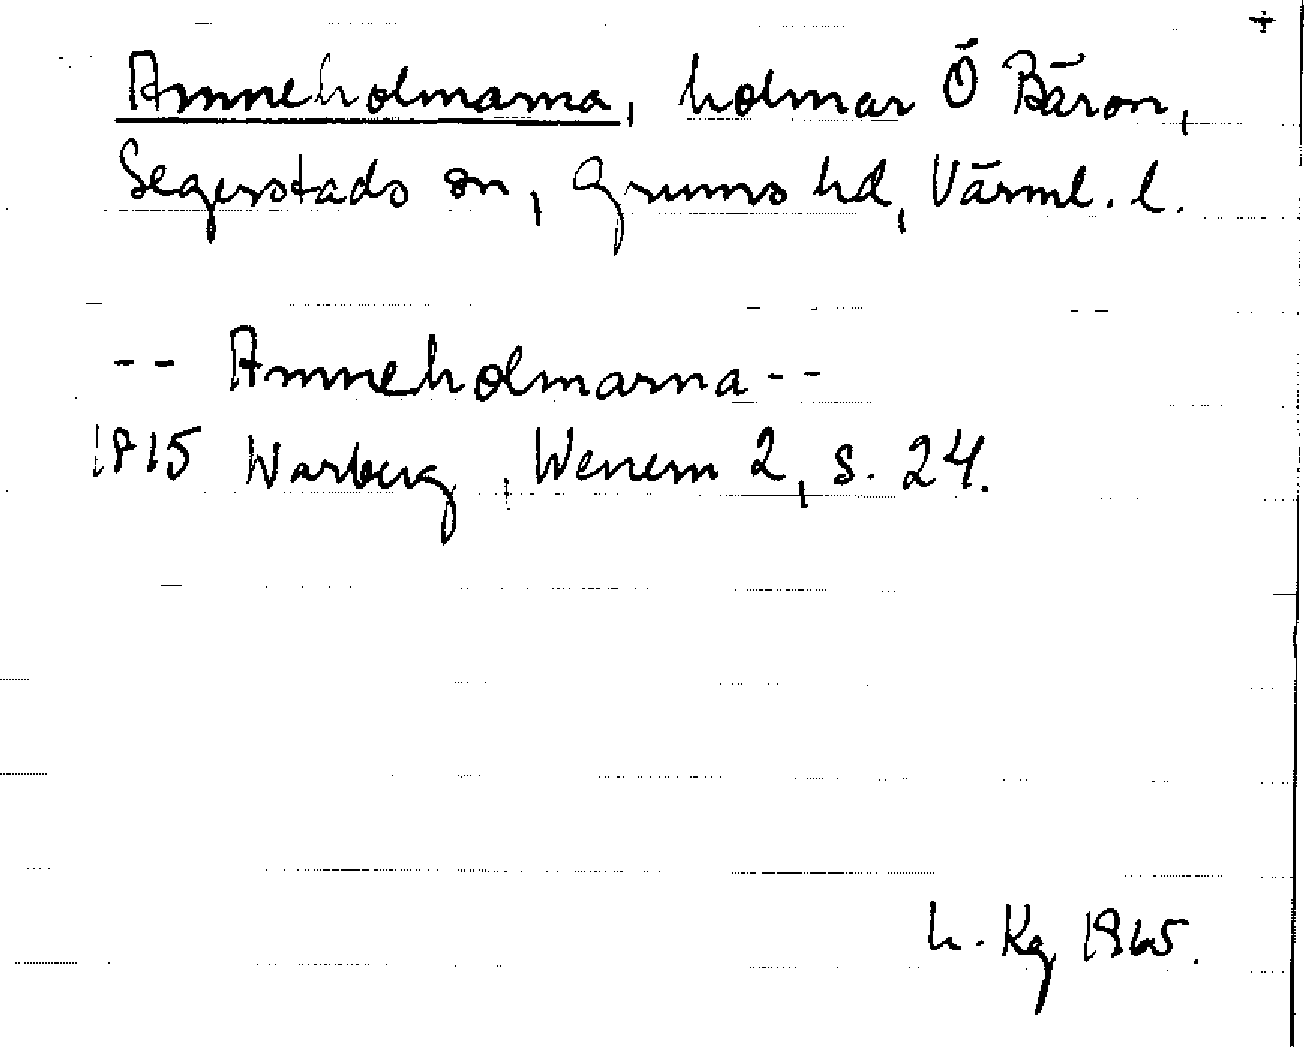 +
Amneholmarna, holmar Ö Bäron,
Segerstads sn, Grums hd, Värml. l.
-- Amneholmarna --
1815 Warberg, Wenern 2, s. 24.
h. Kg 1965.